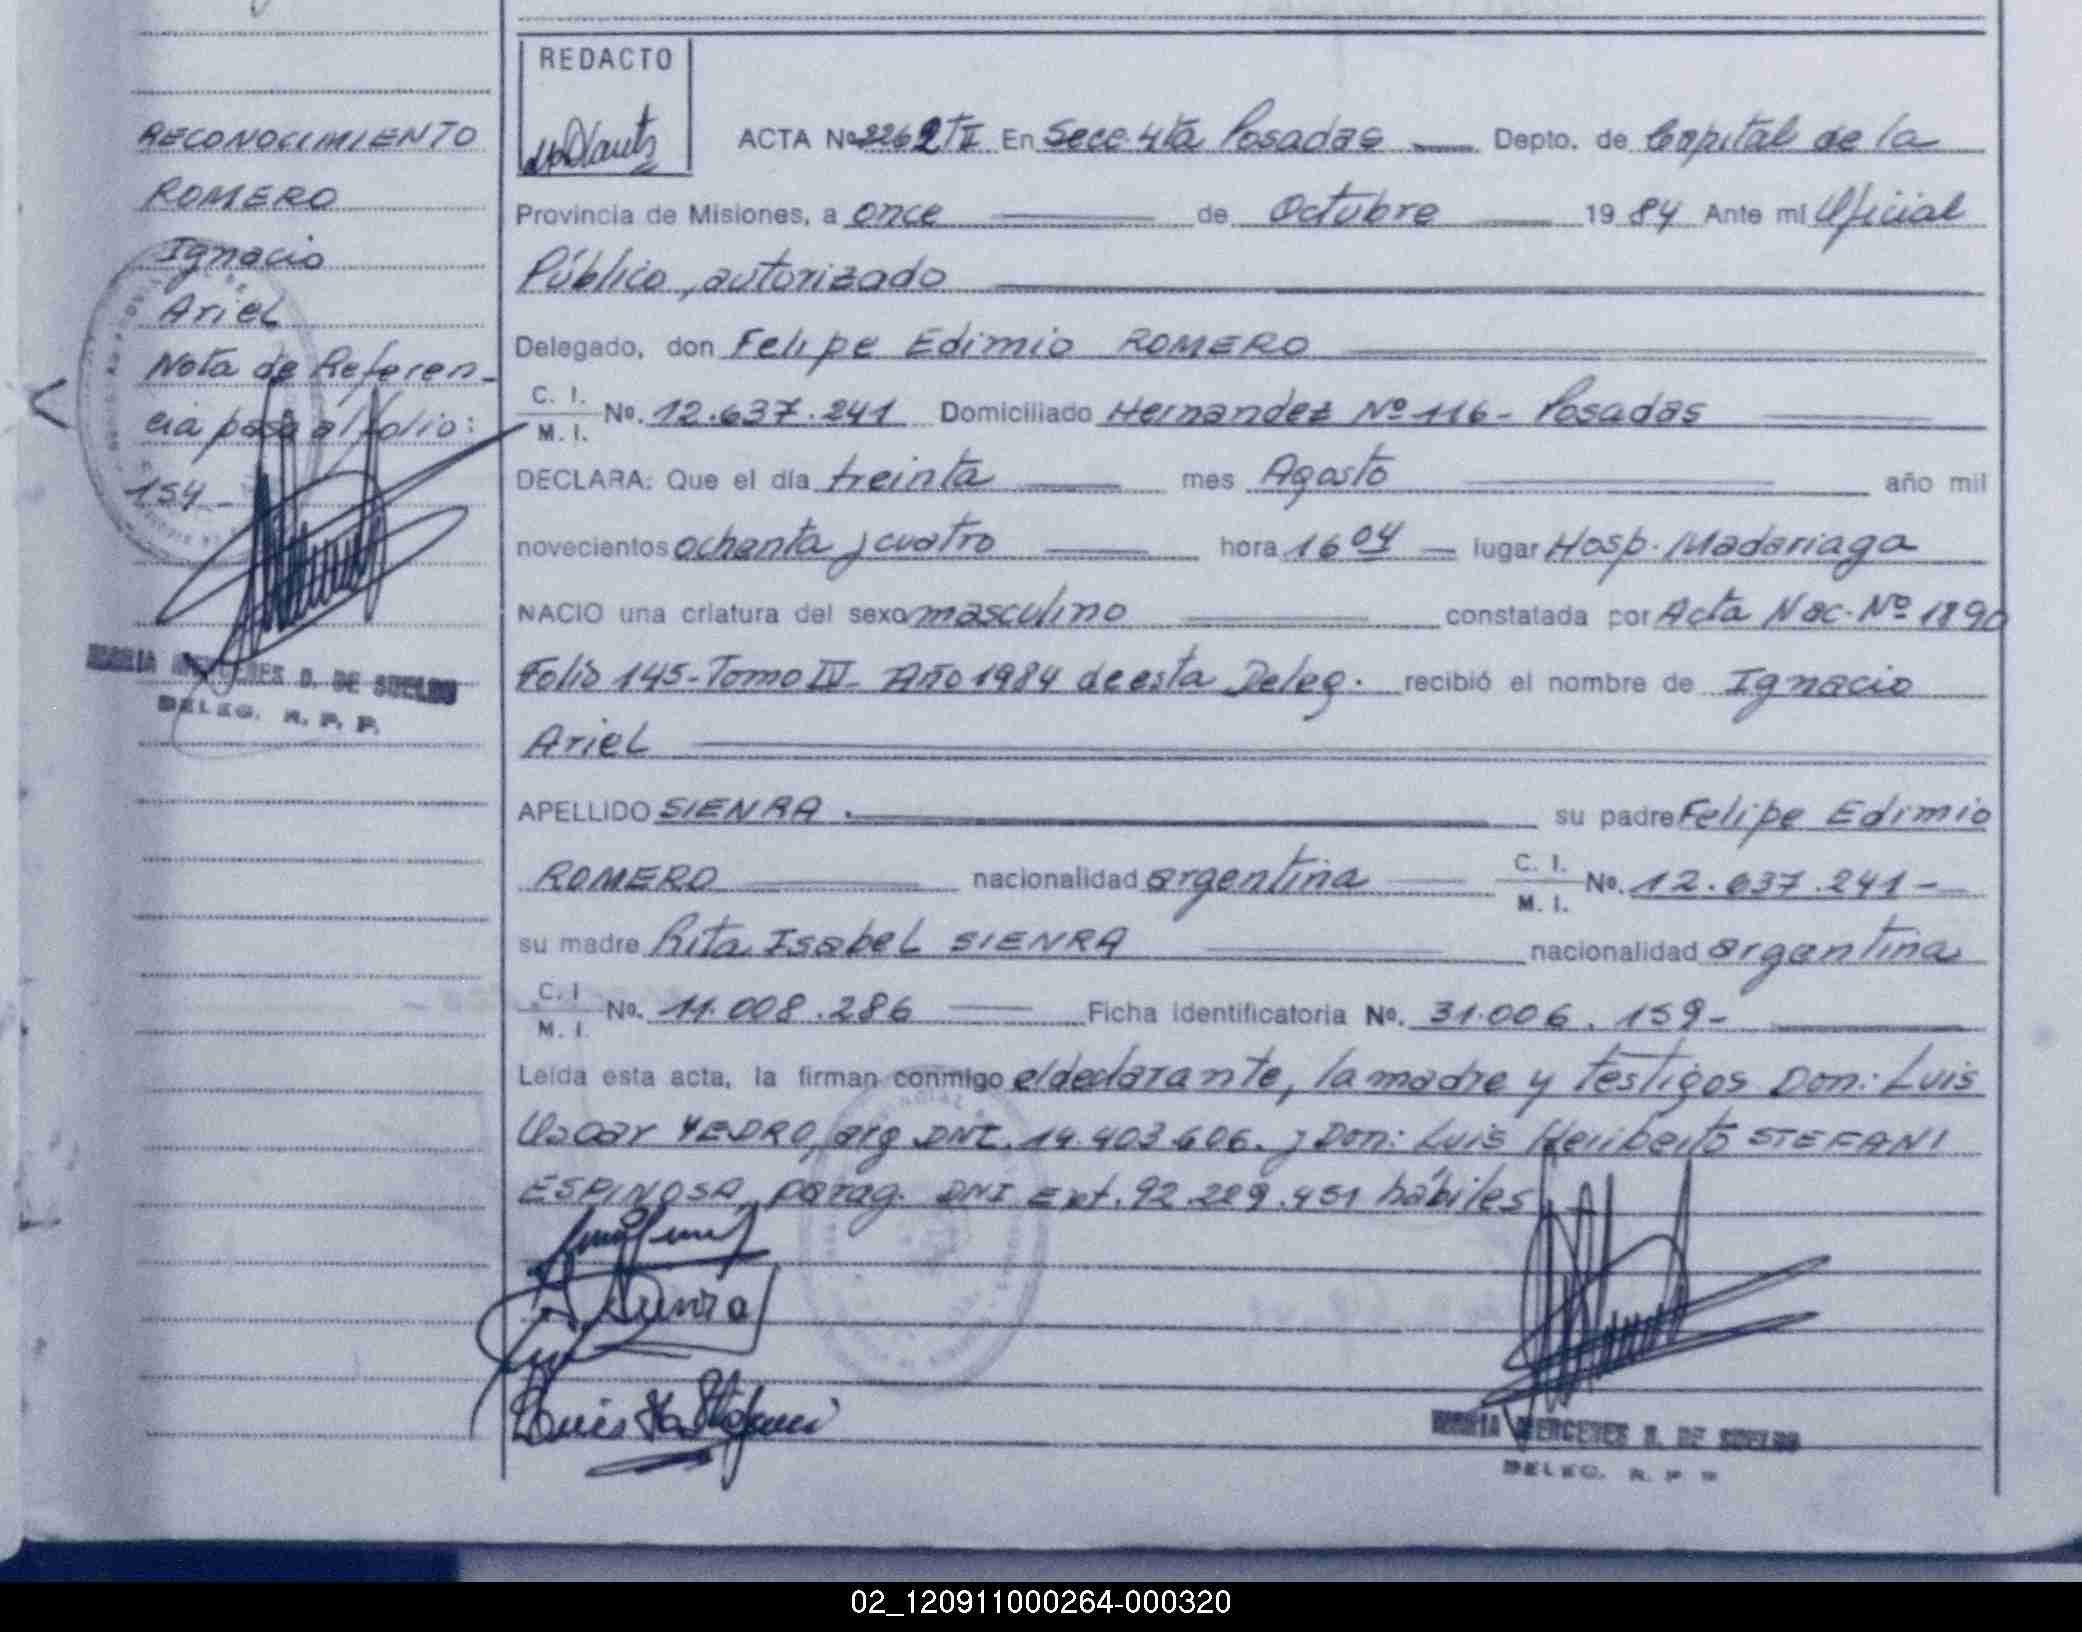 RECONOCIMIENTO
ROMERO
Ignacio
Ariel
Nota de Referen-
cia pasa al folio:
154-
MARIA MERCEDES D. DE SUELDO
DELEG. R. P. P.
REDACTO
ACTA Nº 2262 TII En Secc. 4ta Posadas Depto. de Capital de la
Provincia de Misiones, a once de Octubre 1984 Ante mi Oficial
Público, autorizado
Delegado, don Felipe Edimio ROMERO
C. I.
M. I. Nº. 12.637.241 Domiciliado Hernandez Nº 116- Posadas
DECLARA: Que el día treinta mes Agosto año mil
novecientos ochenta y cuatro hora 16 04 lugar Hosp. Madariaga
NACIO una criatura del sexo masculino constatada por Acta Nac. Nº 1890
Folio 145-Tomo III- Año 1984 de esta Deleg. recibió el nombre de Ignacio
Ariel
APELLIDO SIENRA. su padre Felipe Edimio
ROMERO nacionalidad argentina C. I.
M. I. Nº. 12.637.241-
su madre Rita Isabel SIENRA nacionalidad argentina
C. I
M. I. Nº. 11.008.286 Ficha identificatoria Nº. 31.006.159-
Leída esta acta, la firman conmigo el declarante, la madre y testigos Don: Luis
Oscar YEDRO, arg DNI. 14.403.606. y Don: Luis Heriberto STEFANI
ESPINOSA, parag. DNI Ext. 92.229.451 hábiles
MARIA MERCEDES D. DE SUELDO
DELEG. R. P. P.
02_120911000264-000320